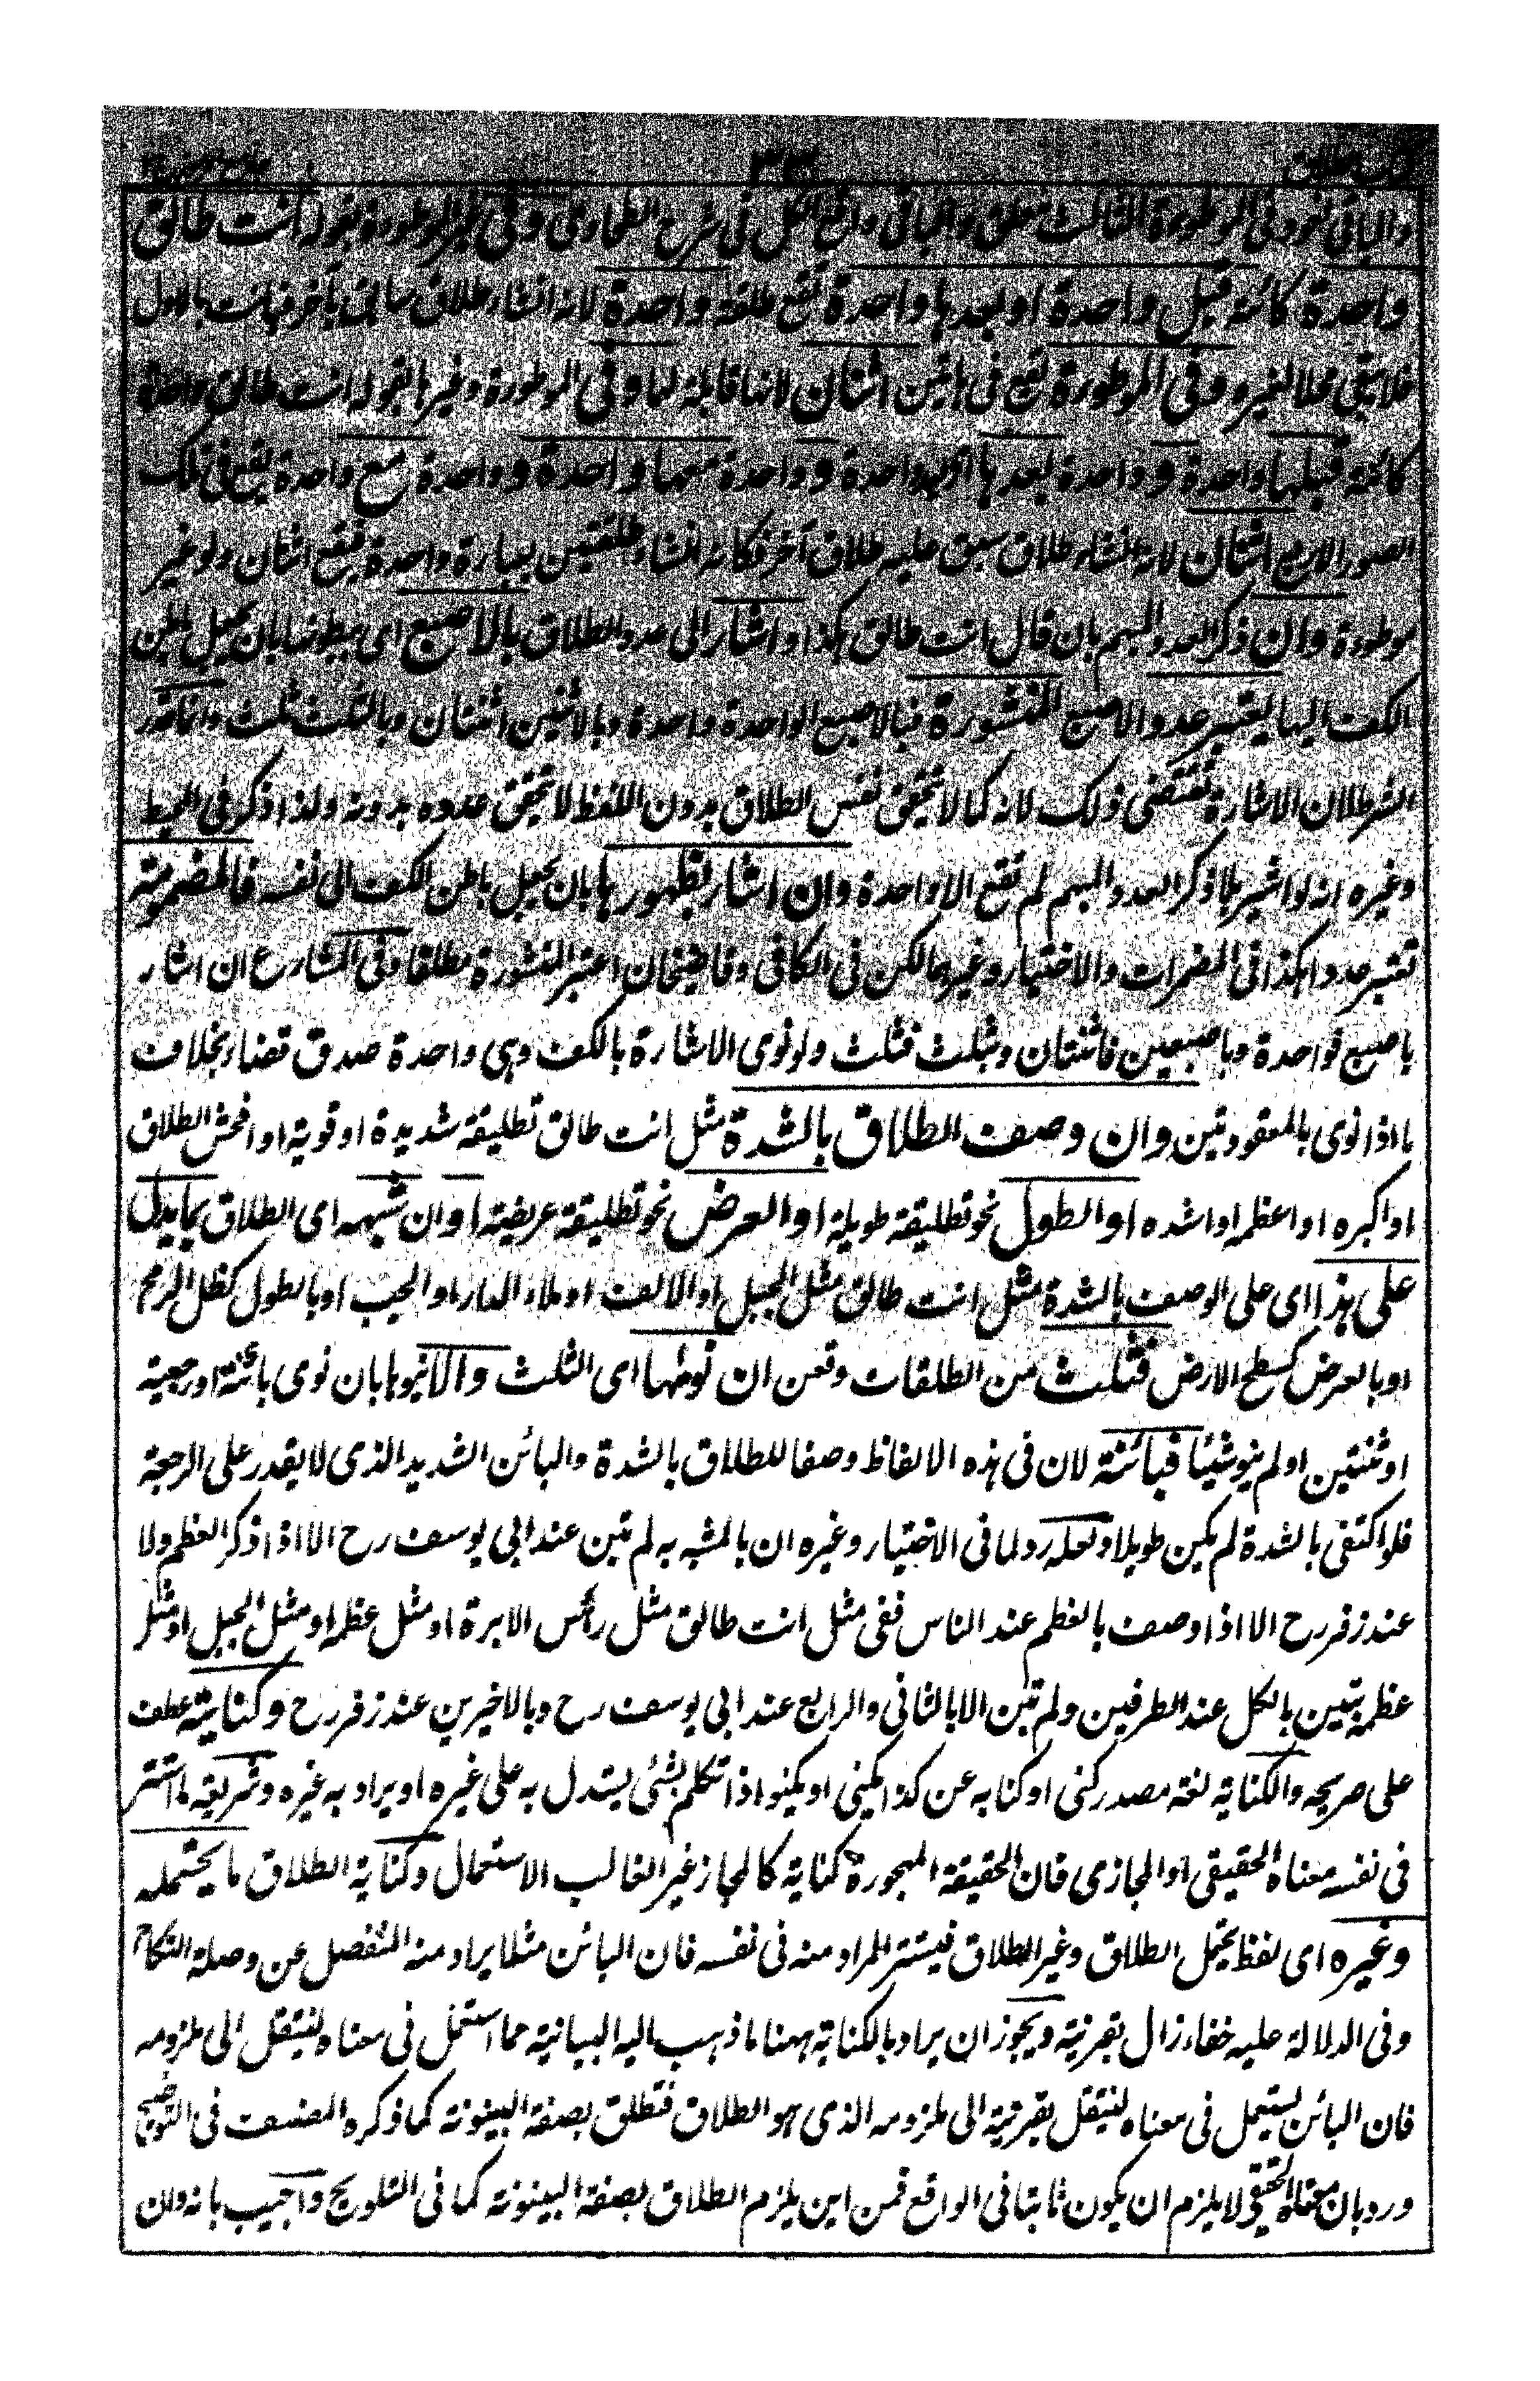 والباقي لغو وفي الموطوءة الثالث تعلق والباقي واقع الكل في شرح الطحاوي وفي غير الموطوءة بقوله انت طالق
واحدة كائنة قبل واحدة او بعدها واحدة تقع طلقة واحدة لانه انشاء طلاق سابق بآخر فبانت بالاول
فلا يبقى محلا لغيره وفي الموطوءة تقع في هاتين اثنتان لانها قابلة لهما وفي الموطوءة وغيرها بقوله انت طالق واحدة
كائنة قبلها واحدة و واحدة بعدها واحدة و واحدة معها واحدة و واحدة مع واحدة يقع في تلك
الصور الاربع اثنتان لانه انشاء طلاق سبق عليه طلاق آخر فكانه انشاء طلقتين بعبارة واحدة فتقع اثنتان ولو غير
موطوءة وان ذكر العدد المبهم بان قال انت طالق هكذا واشار الى عدد الطلاق بالاصبع اى ببطونها بان يجعل باطن
الكف اليها يعتبر عدد الاصبع المنشورة فبالاصبع الواحدة واحدة وبالاثنين اثنتان وبالثلث ثلث وانما قدر
الشرط لان الاشارة تقتضى ذلك لانه كما لا يتحقق نفس الطلاق بدون اللفظ لا يتحقق عدده بدونه ولذا ذكر في المحيط
وغيره انه لو اشير بلا ذكر العدد المبهم لم تقع الا واحدة وان اشار بظهورها بان يجعل باطن الكف الى نفسه فالمضمومة
تعتبر عددا هكذا في المضمرات والاختيار وغيرهما لكن في الكافي وقاضيخان اعتبر المنشورة مطلقا وفي المشارع ان اشار
باصبع فواحدة وباصبعين فاثنتان وبثلث فثلث ولو نوى الاشارة بالكف وهى واحدة صدق قضاء بخلاف
ما اذا نوى بالمعقودتين وان وصف الطلاق بالشدة مثل انت طالق تطليقة شديدة او قوية او افحش الطلاق
او اكبره او اعظمه او اشده او الطول نحو تطليقة طويلة او العرض نحو تطليقة عريضة او ان شبهه اى الطلاق بما يدل
على هذا اى على الوصف بالشدة مثل انت طالق مثل الجبل او الالف او ملاء الدار او الجب او بالطول كظل الرمح
او بالعرض كسطح الارض فثلث من الطلقات وقعن ان نوىها اى الثلث والا ينوها بان نوى بائنة او رجعية
او ثنتين او لم ينو شيئا فبائنة لان في هذه الالفاظ وصفا للطلاق بالشدة والبائن الشديد الذى لا يقدر على الرجعة
فلو اكتفى بالشدة لم يكن طويلا ولعله رد لما في الاختيار وغيره ان بالمشبه به لم تبن عند ابي يوسف رح الا اذا ذكر العظم ولا
عند زفر رح الا اذا وصف بالعظم عند الناس ففى مثل انت طالق مثل رأس الابرة او مثل عظمه او مثل الجبل او مثل
عظمه تبين بالكل عند الطرفين ولم تبن الا بالثاني والرابع عند ابي يوسف رح وبالاخيرين عند زفر رح وكنايته عطف
على صريحه والكناية لغة مصدر كنى او كنا به عن كذا يكنى او يكنو اذا تكلم بشئ يستدل به على غيره او يراد به غيره وشريعة ما استتر
في نفسه معناه الحقيقى او المجازى فان الحقيقة المهجورة كناية كالمجاز غير الغالب الاستعمال وكناية الطلاق ما يحتمله
وغيره اى لفظ يحتمل الطلاق وغير الطلاق فيستتر المراد منه في نفسه فان البائن مثلا يراد منه المنفصل عن وصلة النكاح
وفي الدلالة عليه خفاء زال بقرينة ويجوز ان يراد بالكناية ههنا ما ذهب اليه البيانية مما استعمل في معناه لينتقل الى ملزومه
فان البائن يستعمل في معناه لينتقل بقرينة الى ملزومه الذى هو الطلاق فتطلق بصفة البينونة كما ذكره المصنف في التوضيح
ورد بان معناه الحقيقى لا يلزم ان يكون ثابتا في الواقع فمن اين يلزم الطلاق بصفة البينونة كما في التلويح واجيب بانه وان